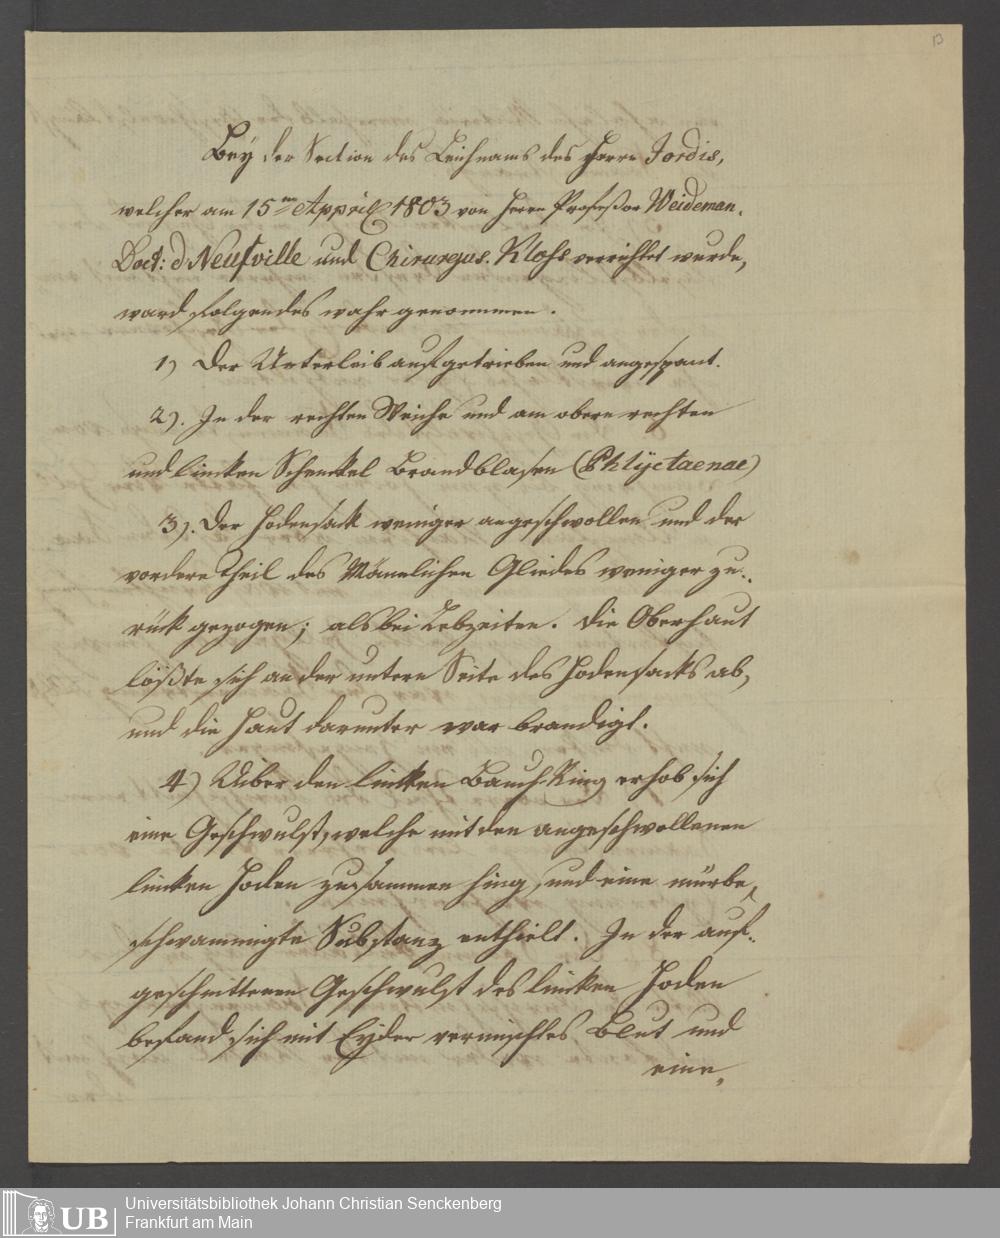 13
Bey der Section des Leichnams des Herrn Jordis,
welcher am 15ten Appril 1803 von Herrn Profeßor Weideman,
Doct: d Neufville und Chirurgus. Kloß verrichtet wurde,
ward folgendes wahr genommen.
1) Der Unterleib aufgetrieben und angespant.
2). In der rechten Weiche und am obern rechten
und lincken Schenckel Brandblasen (Phlÿctaenae)
3). Der Hodensack weniger angeschwollen und der
vordere Theil des Mänlichen Gliedes weniger zu-
rück gezogen; als bei Lebzeiten. Die Oberhaut
lößte sich an der untern Seite des Hodensacks ab,
und die Haut darunter war brandigt.
4) Uiber den lincken Bauch-Ring erhob sich
eine Geschwulst, welche mit den angeschwollenen
lincken Hoden zusammen hing, und eine mürbe,
schwammigte Substanz enthielt. In der auf-
geschnittenen Geschwulst des lincken Hoden
befand sich mit Eÿder vermischtes Blut und
eine,
Universitätsbibliothek Johann Christian Senckenberg
UB Frankfurt am Main